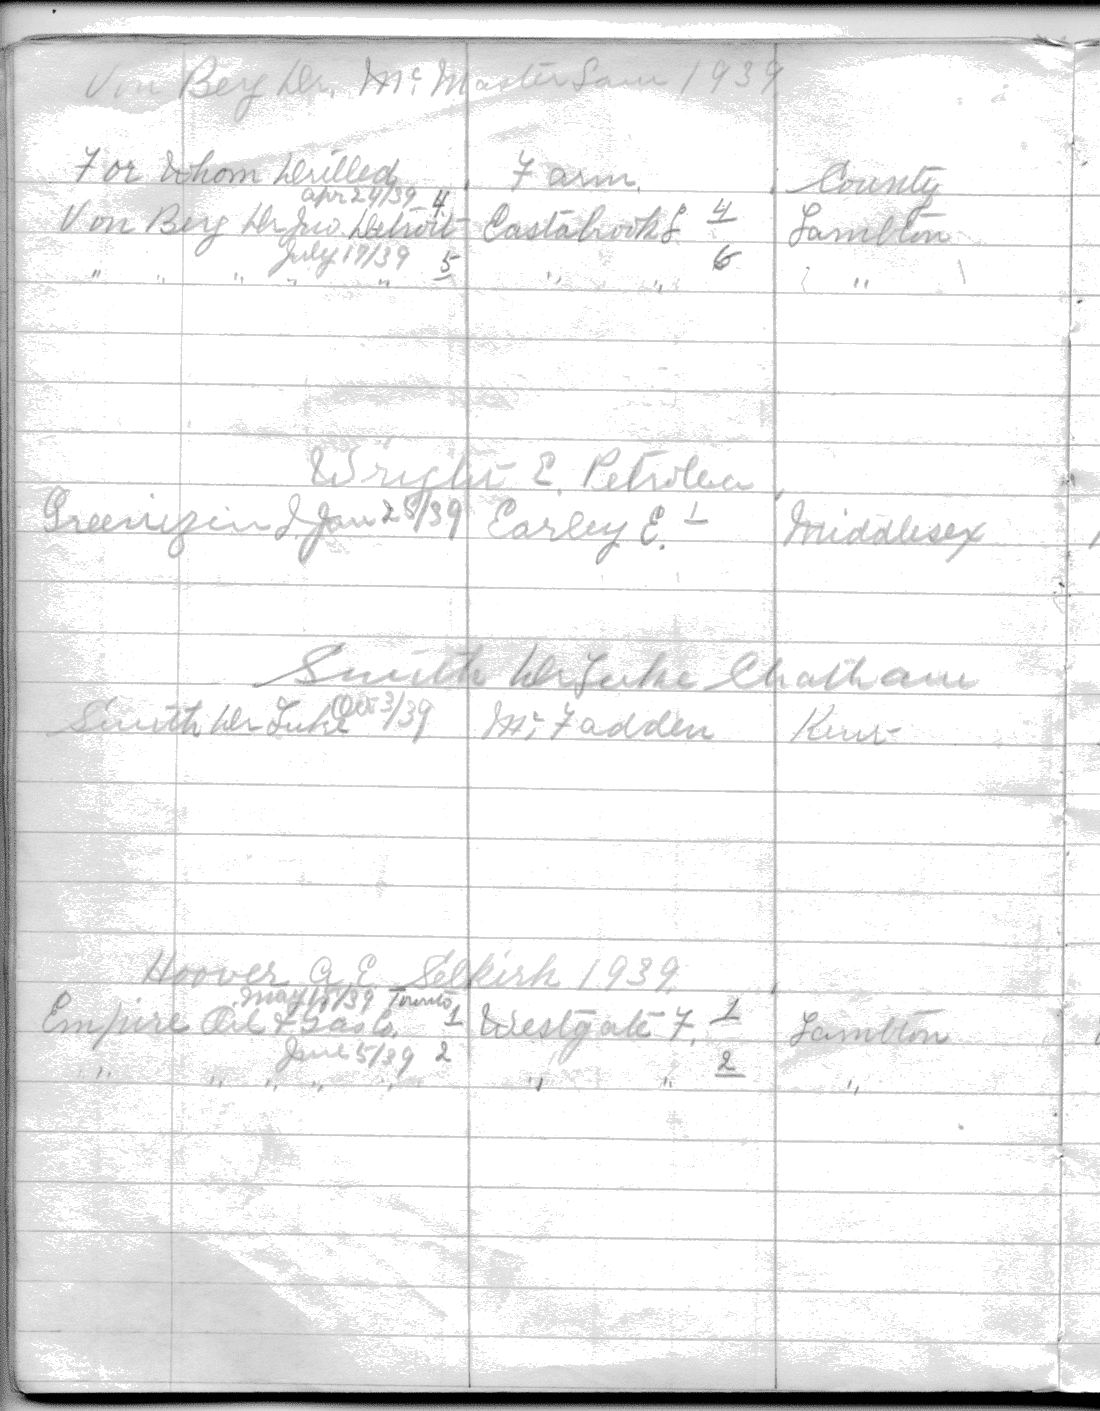 Von Berg Dr. Mc Master Sam 1939
For Whom Drilled Farm. County
Apr 29/39 4 4
Von Berg Dr Jno Detroit Eastabrook L Lambton
July 17/39 5 6
" " " " " " " "
Wright E. Petrolea
Greenizin J Jan 25/39 Earley E. 1 Middlesex
Smith Dr Luke Chatham
Smith Dr Luke Oct 3/39 Mc Fadden Kent
Hoover G E Selkirk 1939
May 17/39 Toronto
Empire Oil & Gas Co. 1 Westgate F. 1 Lambton
June 5/39 2 2
" " " " " " " "